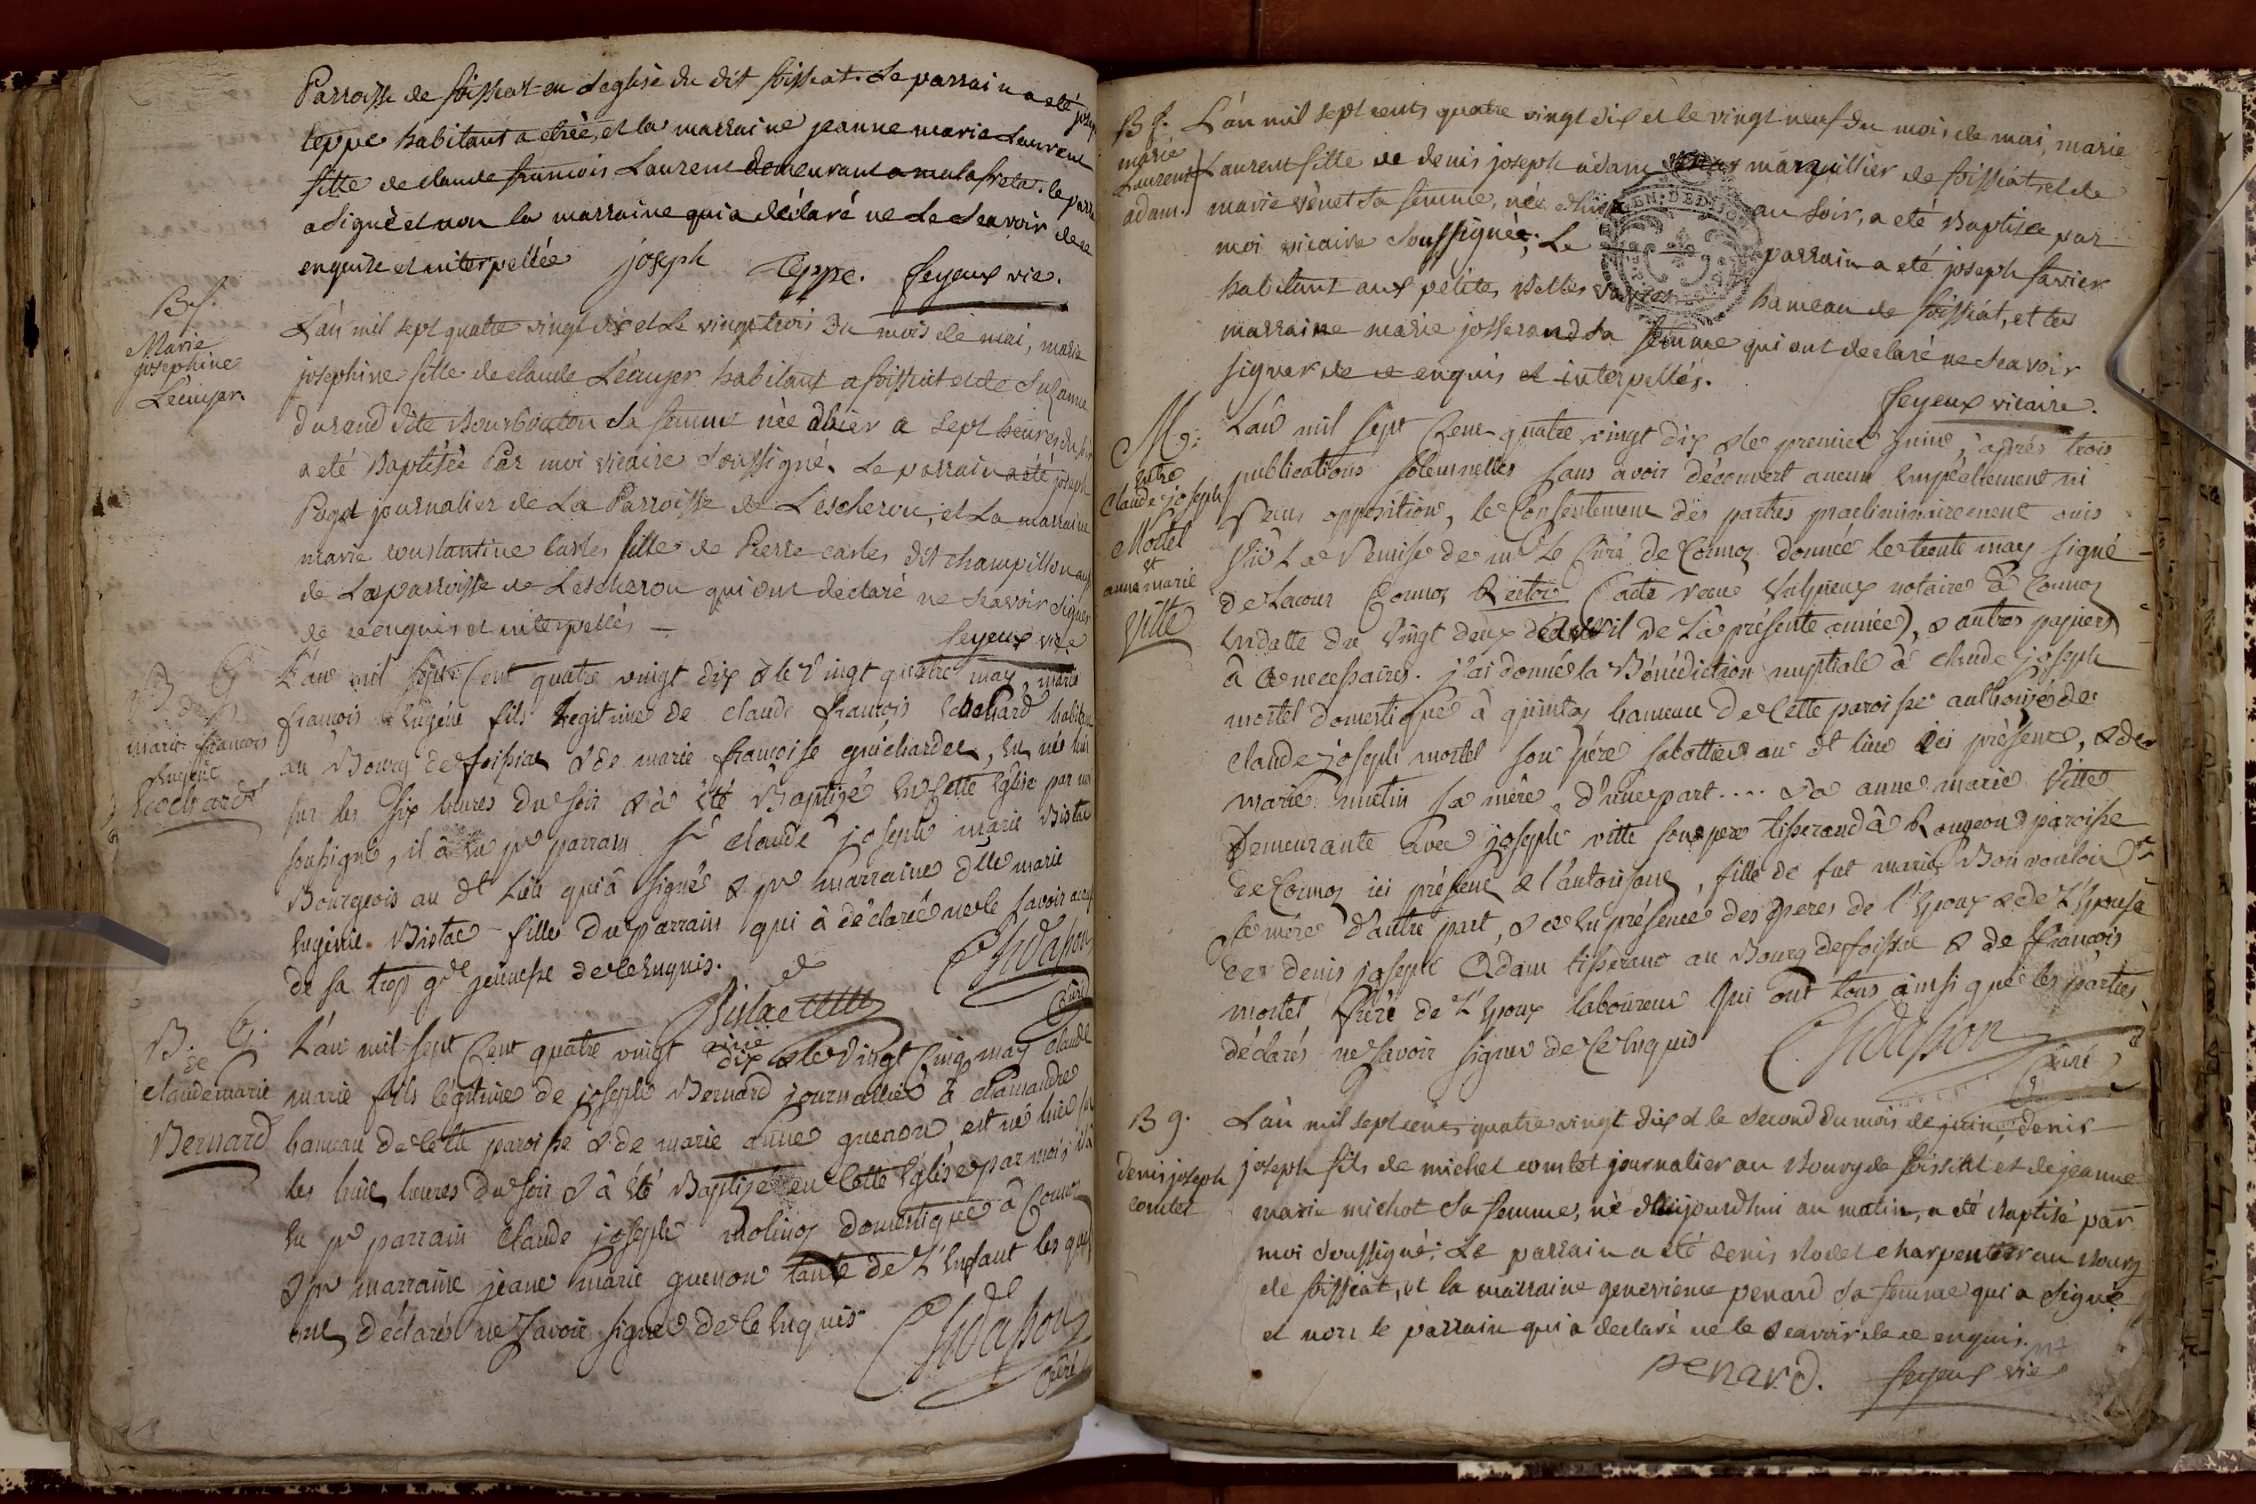 Parroisse de foissiat en l'eglise du dit foissiat. Le parrain a eté joseph
teppe habitant a etrée, et la marraine jeanne marie Laurent
fille de claude francois Laurent demeurant a malafretas. le parrain
a signé et non la marraine qui a déclaré ne le sçavoir de ce
enquise et interpellée joseph teppe. feyeux vic.
B f.
Marie
josephine
Lécuyer.
L'an mil sept quatre vingt dix et le vingt trois du mois de mai, marie
josephine fille de claude Lécuyer habitant a foissiat et de Suzanne
durand dite Bourbouton sa femme née d'hier a sept heures du soir
a eté Baptisée Par moi vicaire soussigné. Le parrain a été joseph
Poget journalier de La Parroisse de Lescherou, et La marraine
marie constantine carles fille de Pierre carles dit champillon aussi
de La parroisse de Lescherou qui ont declaré ne sçavoir signer
de ce enquis et interpellés. feyeux vic.
B G
de
marie francois
Eugene
L'an mil sept Cent quatre vingt dix & le vingt quatre may, marie
francois Eugéne fils legitime de claude françois habitant
au Bourg de foissiat & de marie françoise guichardet, est né hier
sur les six heures du soir & à été Baptizé en Cette Eglise par moi
soussigné, il à eu pr parrain Sr claude joseph marie Bistac
Bourgeois au dt Lieu qui à signé & pr marraine dlle marie
Eugénie Bistac fille du parrain qui à déclaré ne le savoir avec
de sa trop gde jeunesse de ce Enquis.
Bistac
Curé
B. G.
de
claude marie
Bernard
L'an mil sept Cent quatre vingt dix & le vingt Cinq may claude
marie fils légitime de joseph Bernard journallier à
hameau de Cette paroisse & de marie anne guenon est né hier sur
les huit heures du soir & à été Baptizé en Cette Eglise par moi, il à
eu pr parrain claude joseph moliney domestique à Cormoz
& pr marraine jeane marie guenon tante de L'Enfant les quels
ont déclaré ne savoir signer de Ce Enquis
Curé
B f.
marie
Laurent
adam.
L'an mil sept cents quatre vingt dix et le vingt neuf du mois de mai, marie
Laurent fille de denis joseph adam marguillier de foissiat, et de
marie vènet sa femme, née d'hier au soir, a eté Baptisée par
moi vicaire soussigné. Le parrain a eté joseph favier
habitant aux petites hameau de foissiat, et la
marraine marie josserand sa femme qui ont declaré ne sçavoir
signer de ce enquis et interpellés.
feyeux vicaire.
M.
Entre
Claude joseph
Mortel
et
anne marie
Vitte
L'an mil sept Cent quatre vingt dix & le premier juin, après trois
publications solemnelles sans avoir découvert aucun Empêchement ni
opposition, le Consentement des parties praeliminairement ouis
Vû La Remise de mr Le Curé de Cormoz donnée le trente may signé
de Lacour Cormoz Rector (acte reçu notaire à Cormoz
En datte du vingt deux d'avril de La présente année), & autres papiers
à ce necessaires. j'ai donné la Bénédiction nuptiale à claude joseph
mortel domestique à quintas hameau de Cette paroisse authorisé de
claude joseph mortel son père sabottier au dt lieu ici présent, & de
marie mutin sa mère, d'une part.... & à anne marie Vitte
Demeurante avec joseph vitte son pere tisserand à Rougeon paroisse
de Cormoz ici présent & l'autorisant, fille de fut marie Bonvouloir
sa mère d'autre part, & ce En présence des peres de l'Epoux & de L'Epouse
de denis joseph Adam tisserand au Bourg de foissiat & de françois
mortel frère de L'Epoux laboureur qui ont tous ainsi que les parties
déclarés ne savoir signer de Ce Enquis
Curé
B g.
denis joseph
comtet
L'an mil sept cents quatre vingt dix et le second du mois de juin, denis
joseph fils de michel comtet journalier au Bourg de foissiat et de jeanne
marie michot sa femme, né d'aujourd'hui au matin, a eté Baptisé par
moi soussigné. Le parrain a été denis charpentier au Bourg
de foissiat, et la marraine genevieme penard sa femme qui a signé
et non le parrain qui a declaré ne le sçavoir de ce enquis.
penard. feyeux vic